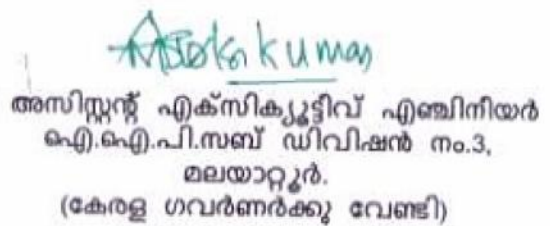 Asokakumar
അസിസ്റ്റന്റ് എക്സിക്യൂട്ടീവ് എഞ്ചിനീയർ
ഐ.ഐ.പി.സബ് ഡിവിഷൻ നം.3,
മലയാറ്റൂർ.
(കേരള ഗവർണർക്കു വേണ്ടി)